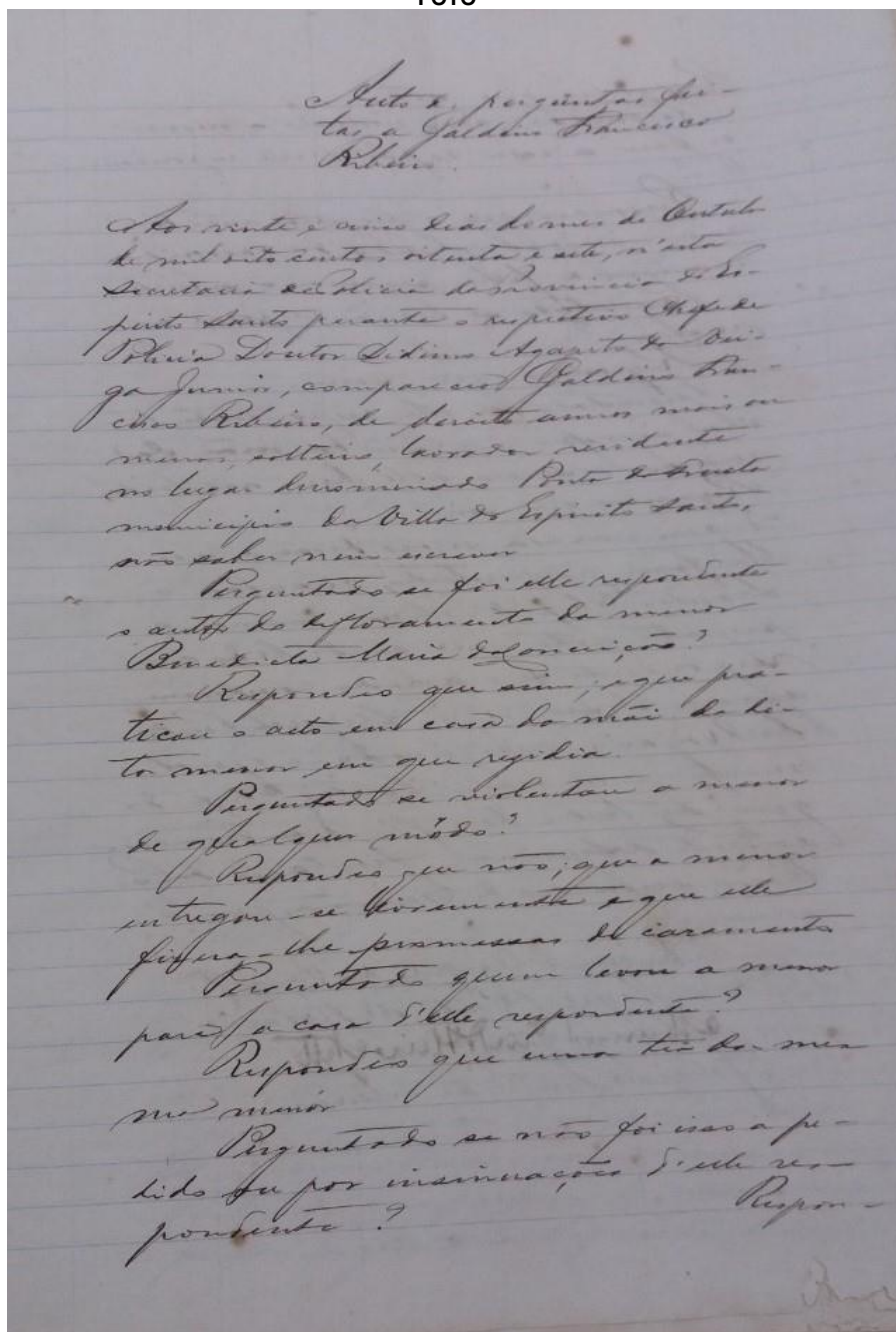 Auto de perguntas fei-
tas a Galdino Francisco
Ribeiro.
Aos vinte e cinco dias do mes de Outubro
de mil oito centos oitenta e sete, n'esta
Secretaria de Policia da Provincia do Es-
pirito Santo perante o respectivo Chefe de
Policia Doutor Didimo Agapito da Vei-
ga Junior, compareceo Galdino Fran-
cisco Ribeiro, de desoito annos mais ou
menos, solteiro, lavrador residente
no lugar denominado Ponta da Fructa
municipio da Villa do Espirito Santo,
não saber nem escrever
Perguntado se foi elle respondente
o autor do defloramento da menor
Benedicta Maria da Conceição?
Respondeo que sim, e que pra-
ticou o acto em casa da mãi da di-
ta menor em que residia.
Perguntado se violentou a menor
de qualquer módo?
Respondeo que não; que a menor
entregou-se livremente e que elle
fizera-lhe promessas de casamento
Perguntado quem levou a menor
para a casa d'elle respondente?
Respondeo que uma tia da mes
ma menor
Perguntado se não foi isso a pe-
dido ou por insinuações d'elle res-
pondente?
Respon-